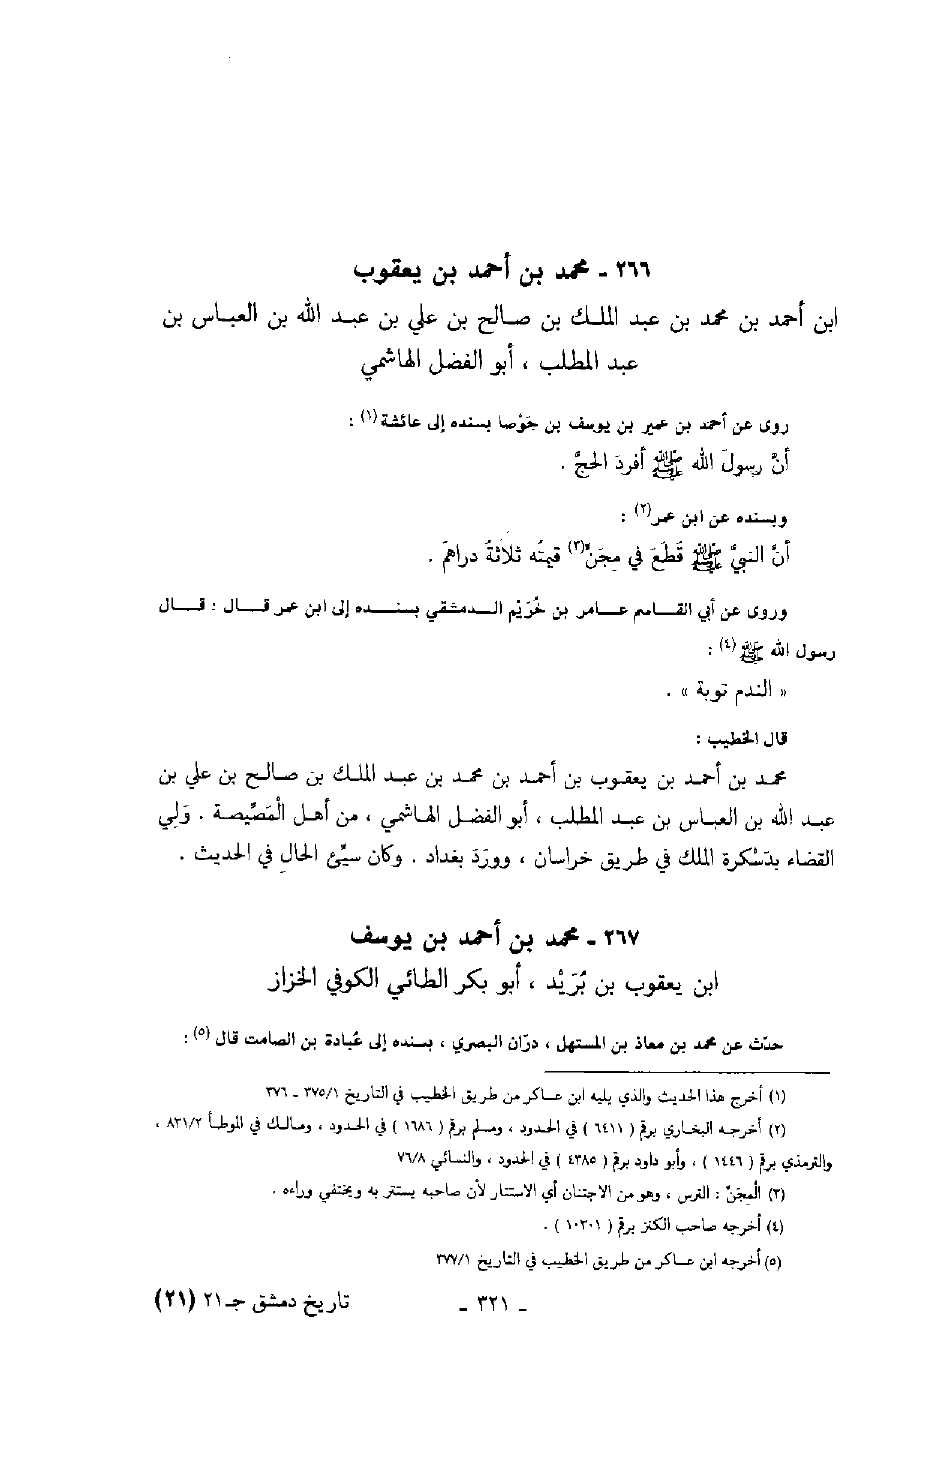 ٢٦٦ ـ محمد بن أحمد بن يعقوب
ابن أحمد بن محمد بن عبد الملك بن صالح بن علي بن عبد الله بن العباس بن
عبد المطلب ، أبو الفضل الهاشمي
روى عن أحمد بن عمير بن يوسف بن جَوْصا بسنده إلى عائشة(١) :
أنَّ رسولَ الله ﷺ أفردَ الحجَّ .
وبسنده عن ابن عمر(٢) :
أنَّ النبيَّ ﷺ قَطَعَ في مِجَنّ(٣) قيمتُه ثلاثةُ دراهمَ .
وروى عن أبي القاسم عامر بن خُرَيْم الدمشقي بسنده إلى ابن عمر قال : قال
رسول الله ﷺ(٤) :
« الندم توبة » .
قال الخطيب :
محمد بن أحمد بن يعقوب بن أحمد بن محمد بن عبد الملك بن صالح بن علي بن
عبد الله بن العباس بن عبد المطلب ، أبو الفضل الهاشمي ، من أهل الْمَصِّيصة . وَلي
القضاء بدَسْكرة الملك في طريق خراسان ، وورَدَ بغداد . وكان سيِّئ الحال في الحديث .
٢٦٧ ـ محمد بن أحمد بن يوسف
ابن يعقوب بن بُرَيْد ، أبو بكر الطائي الكوفي الخزاز
حدّث عن محمد بن معاذ بن المستهل ، درّان البصري ، بسنده إلى عُبادة بن الصامت قال(٥) :
(١) أخرج هذا الحديث والذي يليه ابن عساكر من طريق الخطيب في التاريخ ٣٧٥/١ ـ ٣٧٦
(٢) أخرجه البخاري برقم ( ٦٤١١ ) في الحدود ، ومسلم برقم ( ١٦٨٦ ) في الحدود ، ومالك في الموطأ ٨٣١/٢ ،
والترمذي برقم ( ١٤٤٦ ) ، وأبو داود برقم ( ٤٣٨٥ ) في الحدود ، والنسائي ٧٦/٨
(٣) الْمِجَنّ : الترس ، وهو من الاجتنان أي الاستتار لأن صاحبه يستتر به ويختفي وراءه .
(٤) أخرجه صاحب الكنز برقم ( ١٠٣٠١ ) .
(٥) أخرجه ابن عساكر من طريق الخطيب في التاريخ ٣٧٧/١
ـ ٣٢١ ـ تاريخ دمشق جـ ٢١ (٢١)